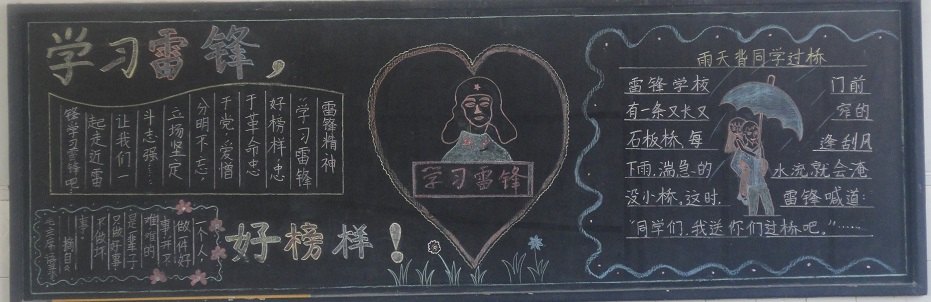 学习雷锋，
雷锋精神
"学习雷锋
好榜样，忠
于革命忠
于党，爱憎
分明不忘，
立场坚定
斗志强……
让我们一
起走近雷
锋学习雷锋吧！
一个人，
做件好
事并不
难，难的
是一辈子
只做好事
不做坏
事
——摘自
好榜样！
学习雷锋
雨天背同学过桥
雷锋学校门前
有一条又长又窄的
石板桥，每逢刮风
下雨，湍急的水流就会淹
没小桥，这时，雷锋喊道：
"同学们，我送你们过桥吧。"……